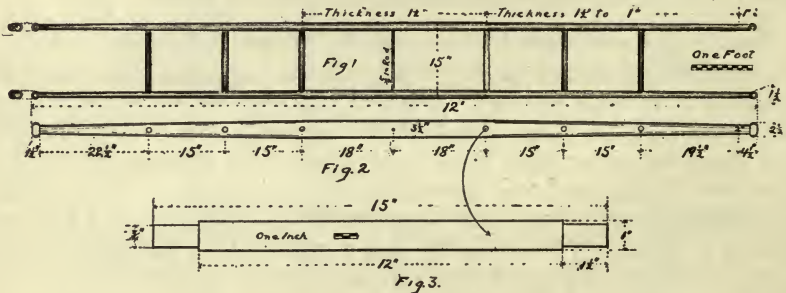 Thickness 1½" Thickness 1½" to 1" 1"
Fig 1 ½ in Rod 15" One Foot
12'
1½
3½" 2½
1½" 22½" 15" 15" 18" 18" 15" 15" 19½" 4½"
Fig. 2
15"
One Inch 1"
12" 1½"
Fig. 3.